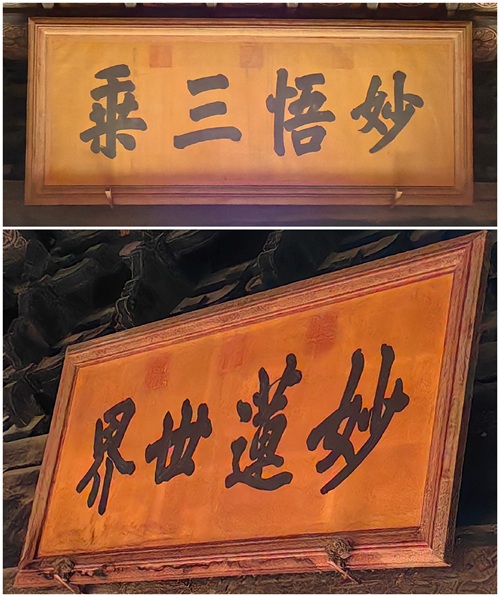 妙悟三乘
妙蓮世界